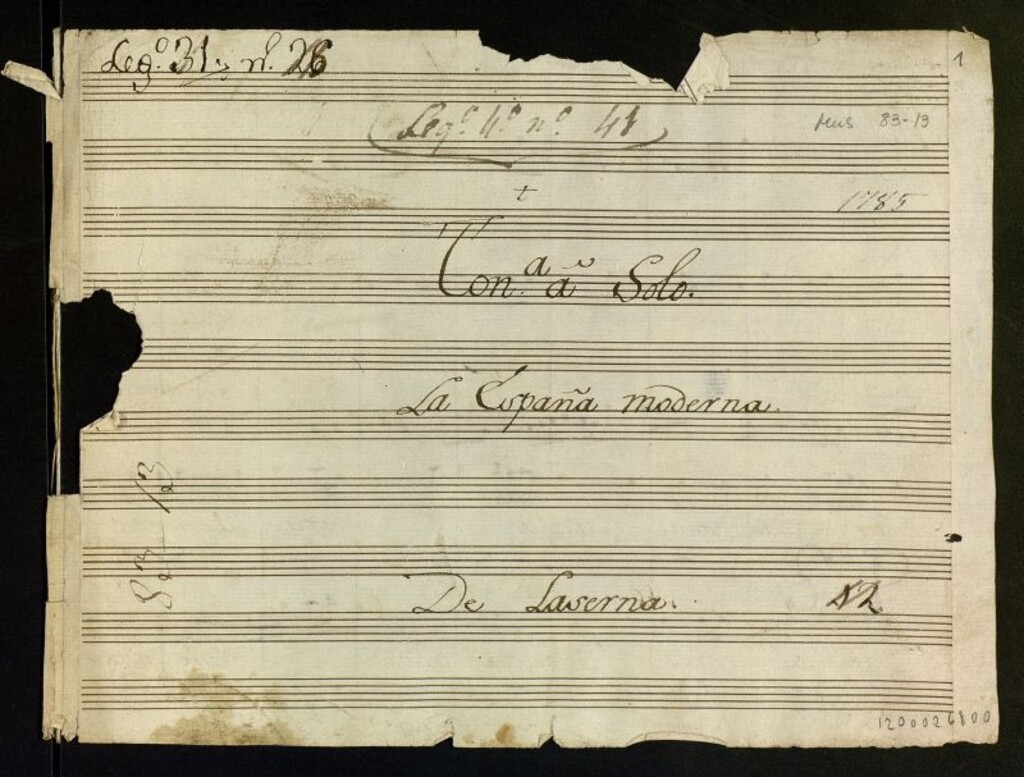 Leg.º 31, n.º 26
1
Leg.º 4.º n.º 41
Mus 83-13
+
1785
Ton.ª a Solo.
La España moderna.
83 13
De Laserna.
12
1200026800